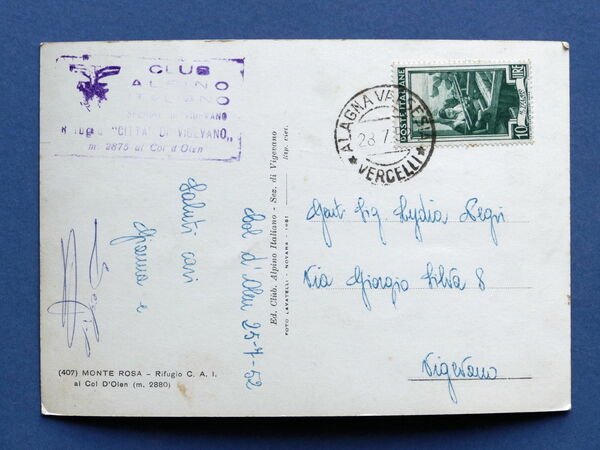 CLUB
ALPINO
ITALIANO
SEZIONE DI VIGEVANO
RIFUGIO "CITTÀ DI VIGEVANO,,
m. 2875 al Col d'Olen
Col d'Olen 25-7-52
Saluti cari
Gianna e
(407) MONTE ROSA - Rifugio C. A. I.
al Col D'Olen (m. 2880)
Ed. Club. Alpino Italiano - Sez. di Vigevano
Rip. viet.
FOTO LAVATELLI - NOVARA - 1951
ALAGNA VALSESIA
28.7.5
★ VERCELLI ★
POSTE ITALIANE
10 LIRE
Gent. Sig. Lydia Negri
Via Giorgio Silva 8
Vigevano